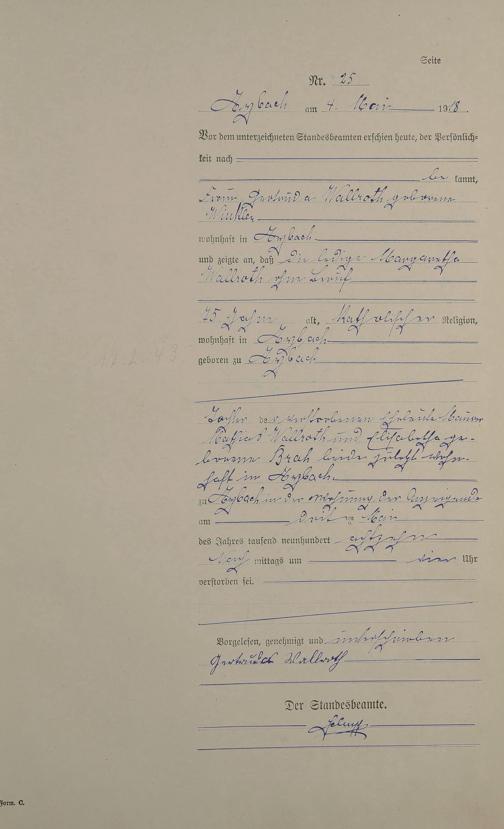 Seite
Nr. 25
am 4. Mai 1918.
Vor dem unterzeichneten Standesbeamten erschien heute, der Persönlich-
keit nach
be kannt,
Frau Gertruda Wallroth geborene
Winkler
wohnhaft in
und zeigte an, daß die ledige Margaretha
Wallroth ohne Beruf
75 Jahre alt, katholischer Religion,
wohnhaft in
geboren zu
Tochter der verstorbenen Eheleute Maurer
Wallroth und Elisabetha ge-
borene Brah beide zuletzt wohn-
haft in
zu in der Wohnung der Anzeigende
am Mai
des Jahres tausend neunhundert achtzehn
Nach mittags um vier Uhr
verstorben sei.
Vorgelesen, genehmigt und unterschrieben
Gertruda Wallroth
Der Standesbeamte.
Form. C.